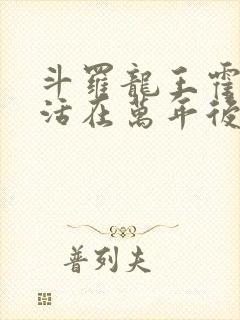 斗羅龍王霍
活在萬年後
普列夫